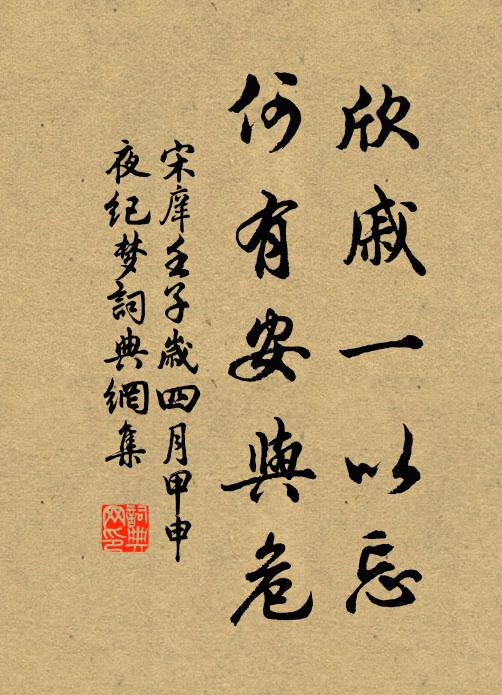 欣戚一以忘
何有安與危
宋庠壬子歲四月甲申
夜纪梦詞典網集
詞典
网印